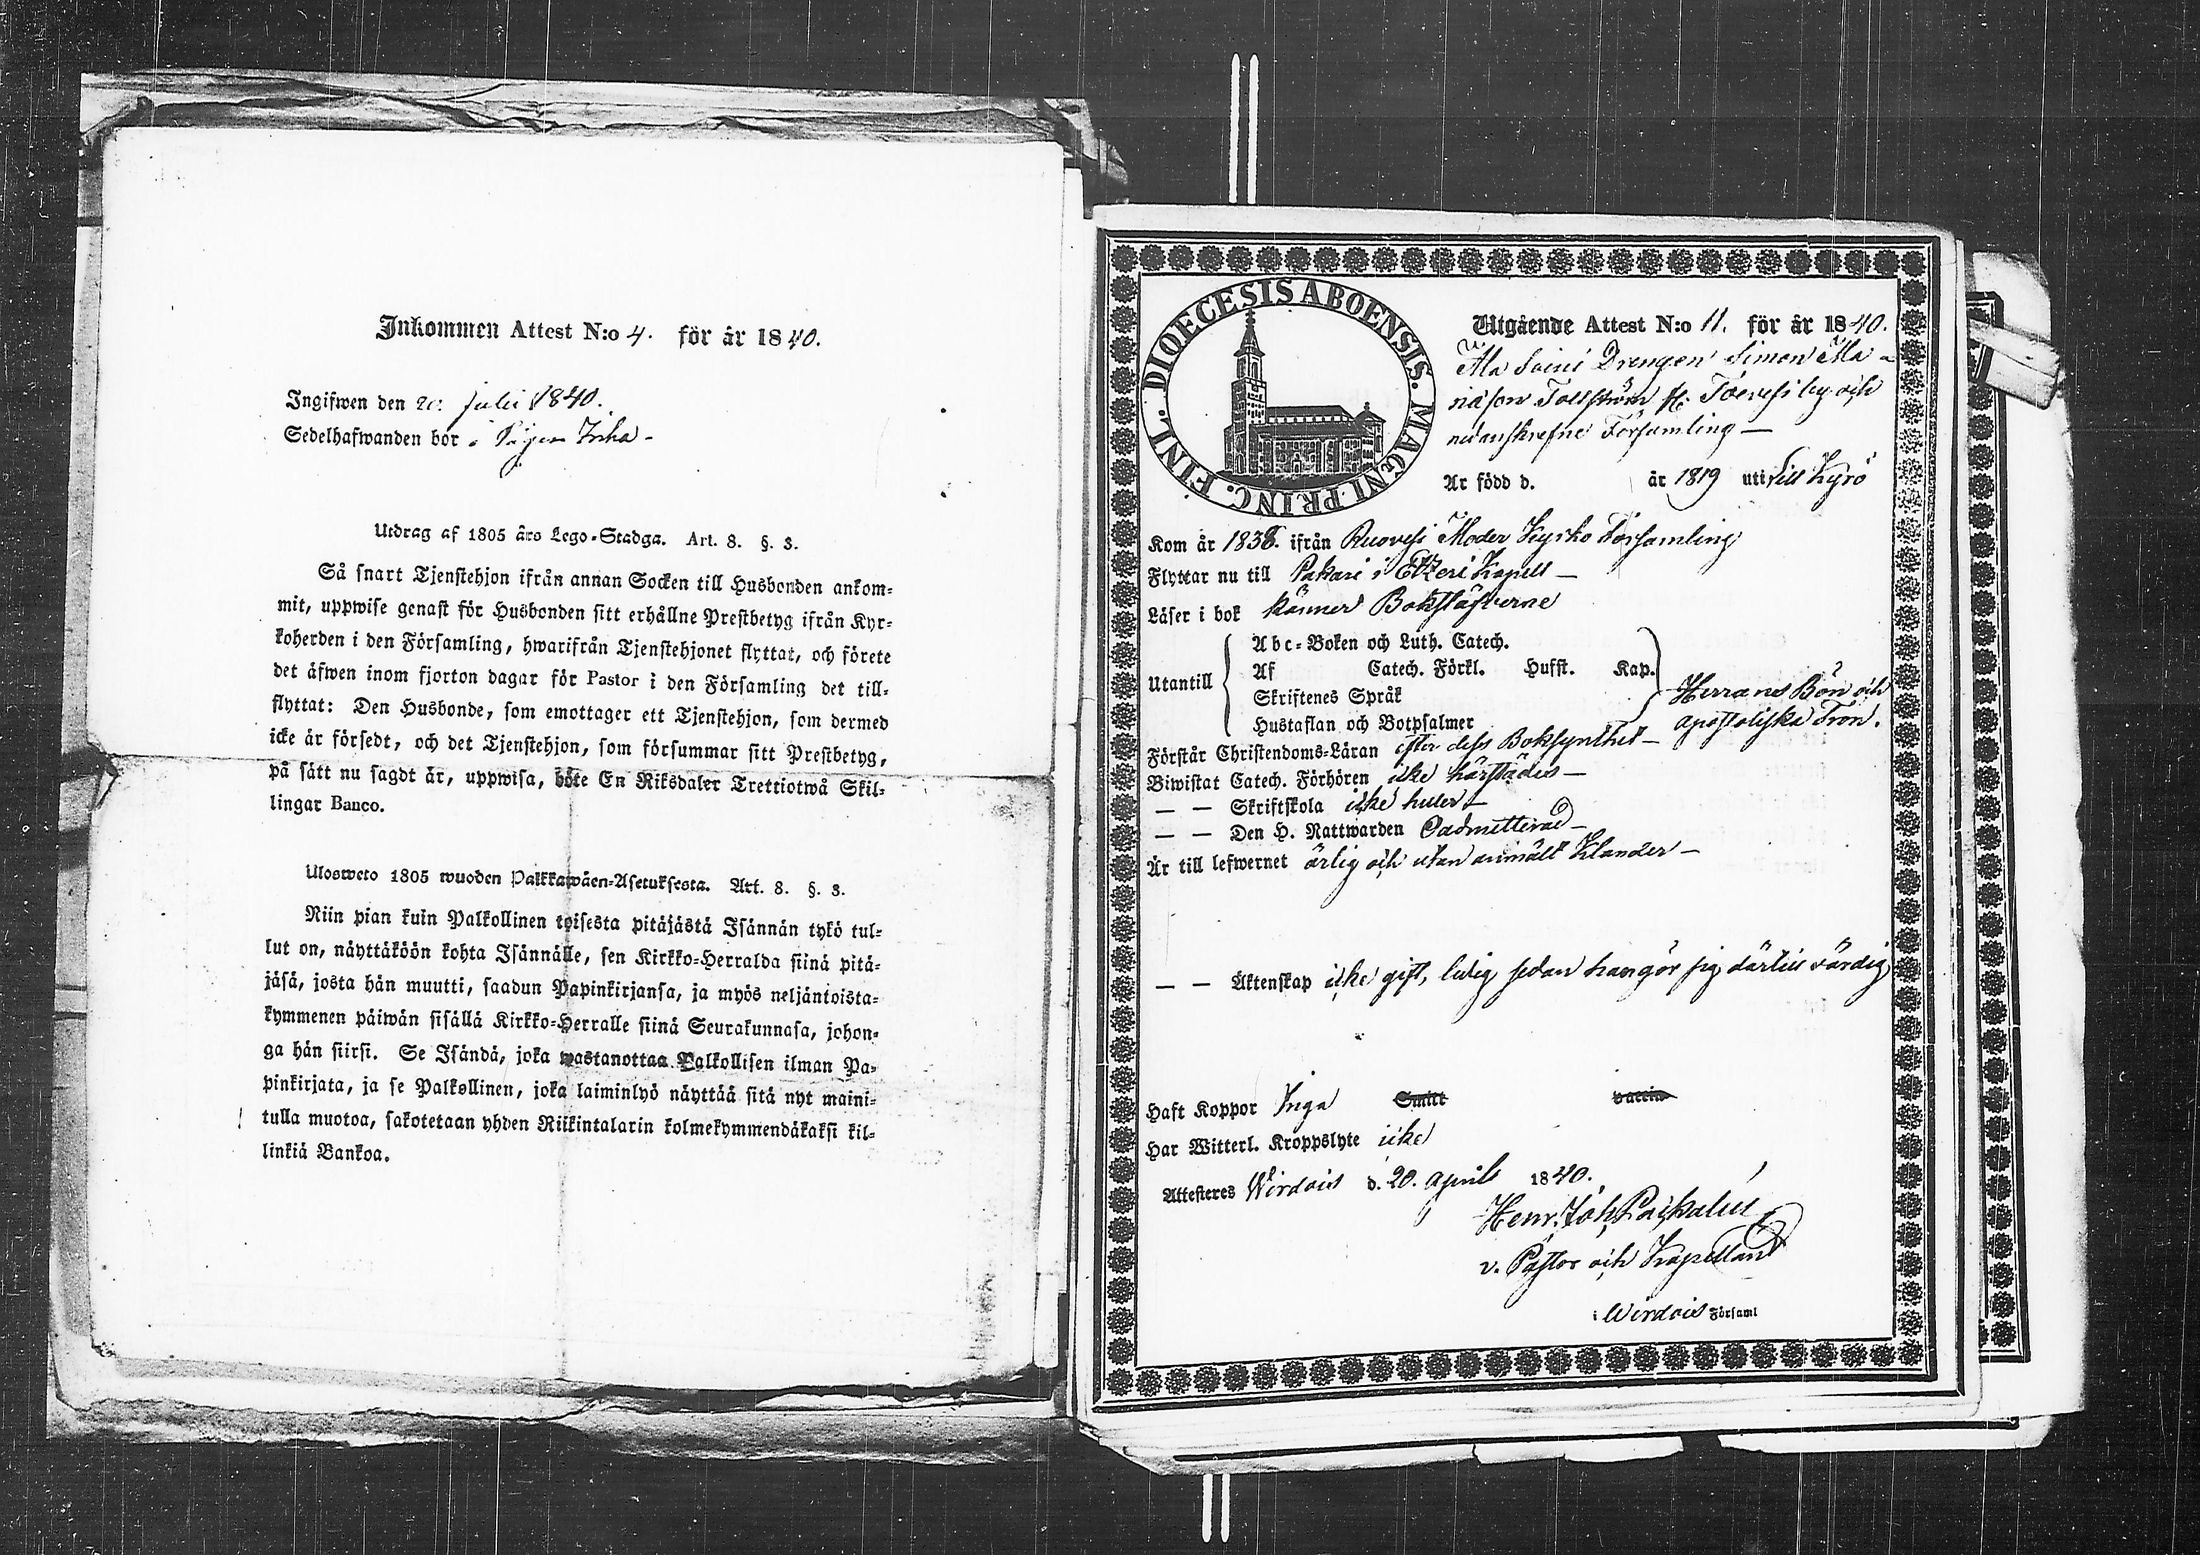 Inkommen Attest N:o 4. för år 1840.
Ingifwen den 20. Julii 1840.
Sedelhafwanden bor i
Utdrag af 1805 års Lego-Stadga. Art. 8. §. 3.
Så snart Tjenstehjon ifrån annan Socken till Husbonden ankom-
mit, uppwise genast för Husbonden sitt erhållne Prestbetyg ifrån Kyr-
koherden i den Församling, hwarifrån Tjenstehjonet flyttat, och förete
det äfwen inom fjorton dagar för Pastor i den Församling det till-
flyttat: Den Husbonde, som emottager ett Tjenstehjon, som dermed
icke är försedt, och det Tjenstehjon, som försummar sitt Prestbetyg,
på sätt nu sagdt är, uppwisa, böte En Riksdaler Trettiotwå Skil-
lingar Banco.
Ulosweto 1805 wuoden Palkkawäen-Asetuksesta. Art. 8. §. 3.
Niin pian kuin Palkollinen toisesta pitäjästä Isännän tykö tul-
lut on, näyttäköön kohta Isännälle, sen Kirkko-Herralda siinä pitä-
jäsä, josta hän muutti, saadun Papinkirjansa, ja myös neljäntoista-
kymmenen päiwän sisällä Kirkko-Herralle siinä Seurakunnasa, johon-
ga hän siirsi. Se Isändä, joka wastanottaa Palkollisen ilman Pa-
pinkirjata, ja se Palkollinen, joka laiminlyö näyttää sitä nyt maini-
tulla muotoa, sakotetaan yhden Riikintalarin kolmekymmendäkaksi kil-
linkiä Bankoa.
DIOECESIS ABOENSIS. MAGNI PRINC. FINL.
Utgående Attest N:o 11. för år 1840.
Drengen Simon Ma-
och
nedanskrefne Församling
Är född d. år 1819 uti Lill Kyro
Kom år 1838. ifrån Ruovesi Moder Kyrko Församling
Flyttar nu till Pakari i Etzeri Kapell
Läser i bok känner Bokstäfverne
Utantill
Abc-Boken och Luth. Catech.
Af Catech. Förkl. Hufst. Kap.
Skriftenes Språk
Hustaflan och Botpsalmer
Herrans Bön och
apostoliska Tron.
Förstår Christendoms-Läran efter dess Boksynthet
Biwistat Catech. Förhören icke härstädes
— — Skriftskola icke heller
— — Den H. Nattwarden Oadmitterad
Är till lefwernet ärlig och utan anmält Klander
— — Äktenskap icke gift, ledig sedan han gör sig därtill värdig
Haft Koppor Inga Smitt vaccin
Har Witterl. Kroppslyte icke
Attesteres Wirdois d. 20. Aprils 1840.
Henr. Joh.
v. Pastor och Kapellan
i Wirdois Församl